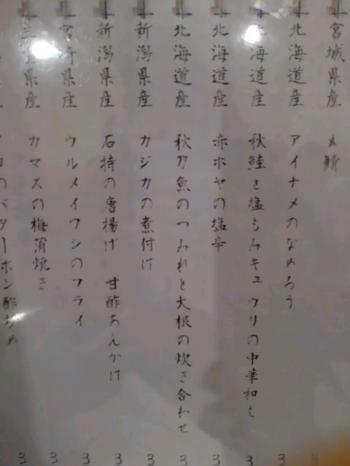 宮城県産 〆鯖
北海道産 アイナメのなめろう
北海道産 秋鮭と塩もみキュウリの中華和え 3
北海道産 赤ホヤの塩辛 3
北海道産 秋刀魚のつみれと大根の炊き合わせ 3
新潟県産 カジカの煮付け 3
新潟県産 石持の唐揚げ 甘酢あんかけ 3
県産 ウルメイワシのフライ 3
県産 カマスの梅肉焼き 3
のバターポン酢炒め 3